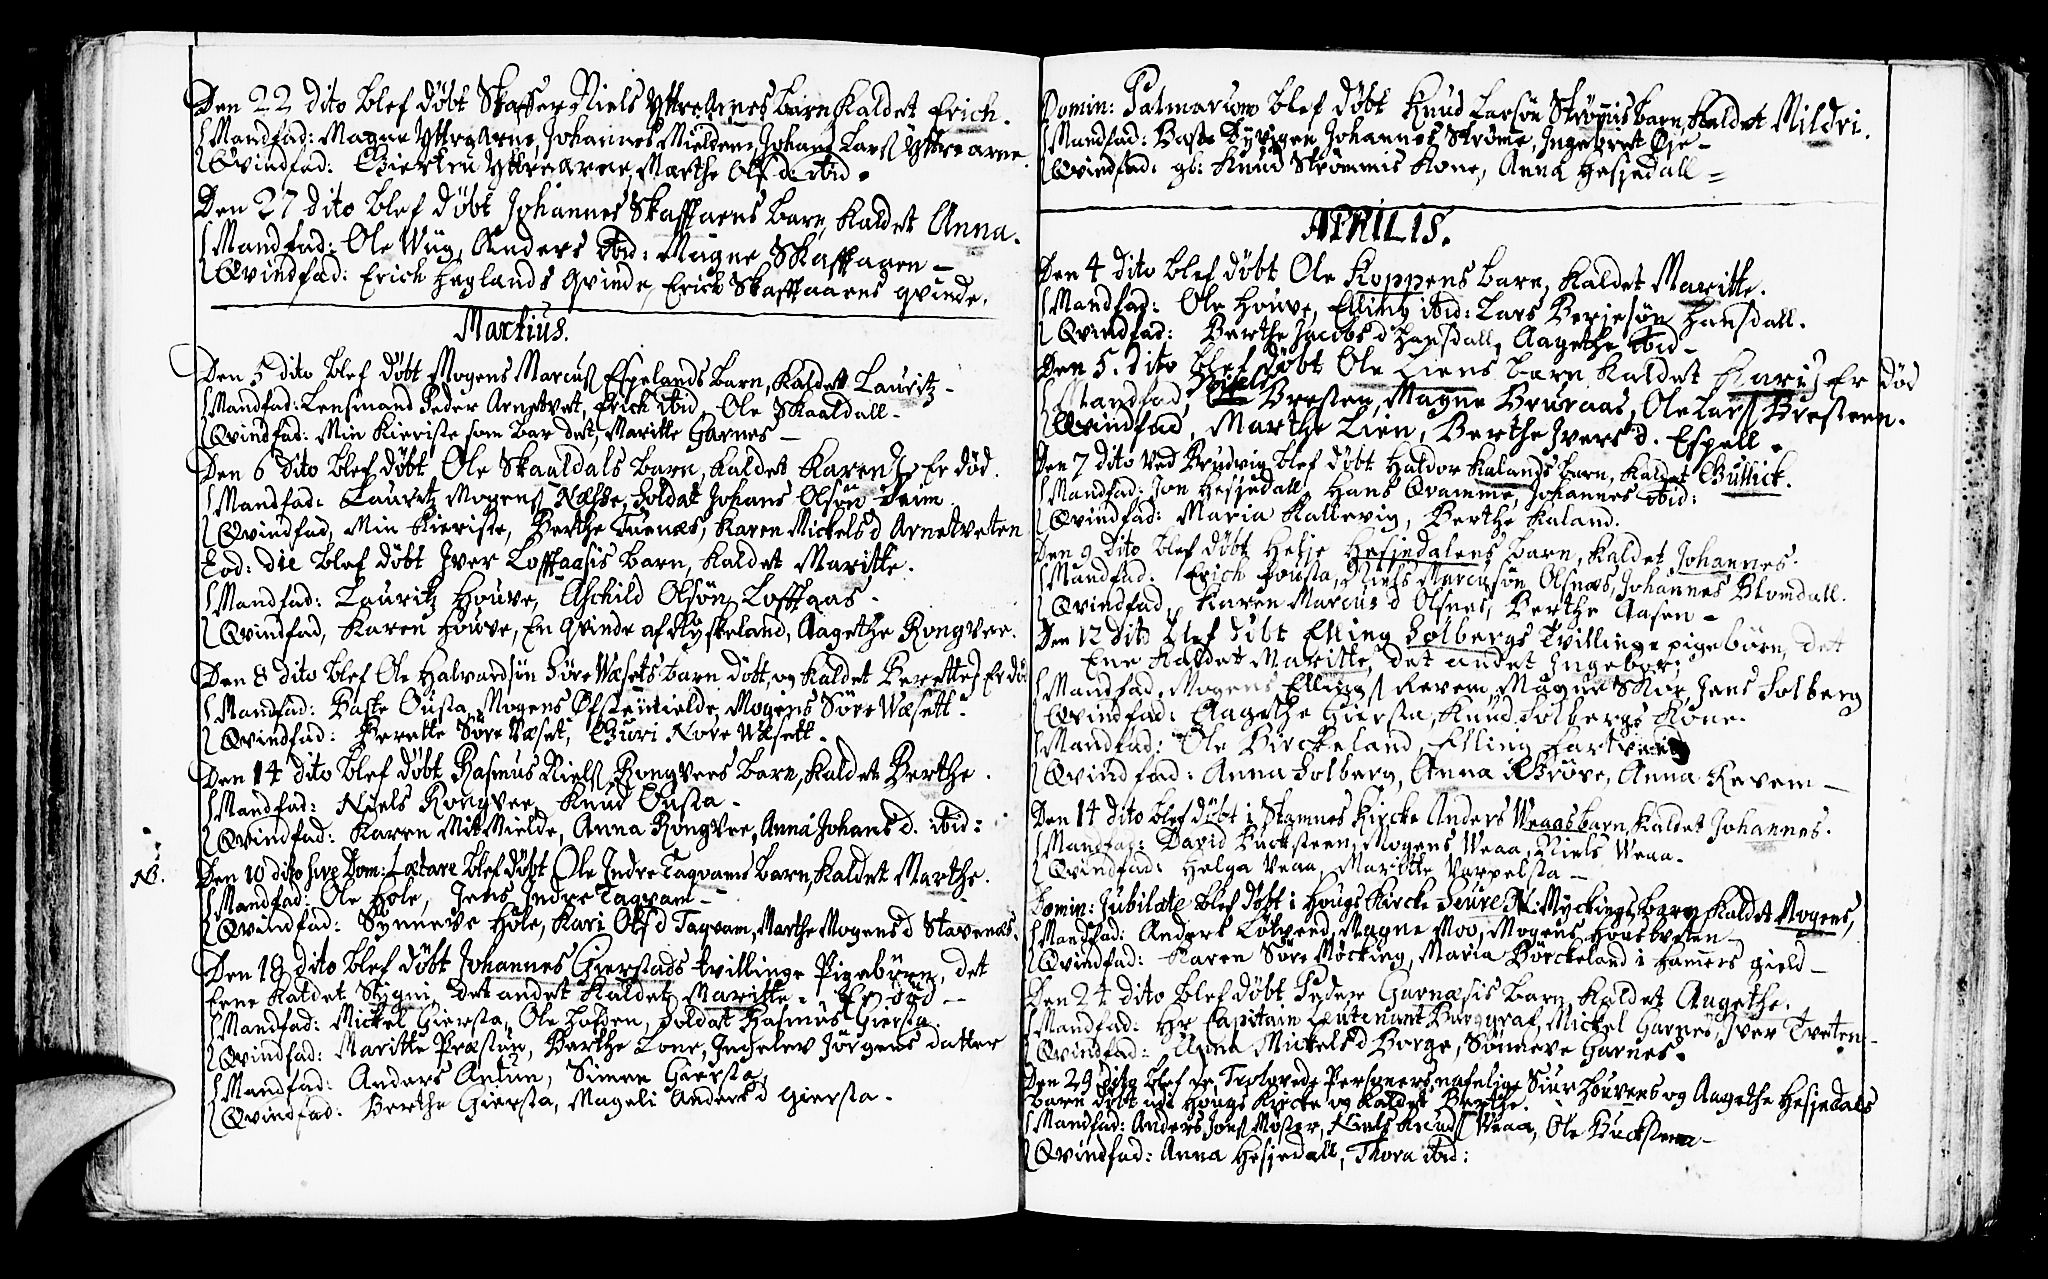 Den 22 dito blef døbt Skaffer Niels Yttre Arnes barn kaldet Erich.
Mandfad: Magne Yttre Arne, Johannes Mieldene, Johans Larss Yttre arne.
Qvindfad: Giertru Yttre arne, Marthe Ols d: ibid.
Den 27 dito blef døbt Johannes Skafftaens barn, kaldet Anna.
Mandfad: Ole Wiig, Anders ibid: Magne Skafftaaen
Qvindfad: Erich Heglands Qvinde, Erich Skafftaarens qvinde.
Martius.
Den 5 dito blef døbt Mogens Marcuss Espelands barn, kaldet Lauritz
Mandfad: Lensmand Peder Arnetvet, Erich ibid, Ole Skaaldall
Qvindfad: Min Kieriste som bar det, Maritte Garnes
Den 6 dito blef døbt Ole Skaaldals barn, kaldet Karen Er død.
Mandfad: Lauritz Mogenss Næsse, soldat Johans Olsön Trim.
Qvindfad, Min Kieriste, Berthe Tuenæs, Karen Mickels d Arnetveten
Eod: die blef døbt Iver Lofftaasis barn, kaldet Maritte.
Mandfad: Lauritz Houve, Aschild Olsön Lofftaas.
Qvindfad, Karen Houve, En Qvinde af Flyskeland, Aagethe Rongvee.
Den 8 dito blef Ole Halvardsön Söre Wæsets barn døbt, og kaldet Berette Er død
Mandfad: Baste Ousta, Mogens Ofstentielde, Mogens Söre Wæsett
Qvindfad: Berette Söre Væset, Guri Nore Wæsett.
Den 14 dito blef døbt Rasmus Nielss Rongvees barn, kaldet Berthe.
Mandfad: Niels Rongvee, Knud Ousta
Qvindfad: Karen Mitmielde, Anna Rongvee, Anna Johans d. ibid:
NB. Den 10 dito sive Dom: Lætare blef døbt Ole Indre Taqvams barn, kaldet Marthe.
Mandfad: Ole Hole, Jens Indre Taqvam
Qvindfad: Synneve Hole, Kari Ols d Taqvam, Marthe Mogens d Stavenæs.
Den 18 dito blef døbt Johannes Gierstads tvillinge Pigebørn, det
Eene kaldet Signi, det andet kaldet Maritte. Er død
Mandfad: Mickel Giersta, Ole Holden, soldat Rasmus Giersta.
Qvindfad: Maritte Præstun, Berthe Lone, Ingelev Jörgens datter
Mandfad: Anders Antun, Simen Giersta,
Qvindfad: Berthe Giersta, Mageli Anders d Giersta.
Domin: Palmarum blef døbt Knud Larsön Strömnis barn, kaldet Mildri.
Mandfad: Baste Bysteen, Johannes Ströme, Ingebret Öje
Qvindfad: gb: Knud Strömmis Kone, Anna Hesjedall
APRILIS.
Den 4 dito blef døbt Ole Koppens barn, kaldet Maritte.
Mandfad: Ole Houve, Elling ibid: Lars Beriesön Hansdall.
Qvindfad: Berthe Jacobs d Hansdall, Aagethe ibid
Den 5. dito blef døbt Ole Liens barn kaldet Kari Er død
Mandfad, Niels Bresten, Magne Bruraas, Ole Larss Bresteen.
Qvindfad, Marthe Lien, Berthe Ivers d. Espell.
Den 7 dito ved Brudvig blef døbt Haldor Kalands barn, kaldet Gullick.
Mandfad: Jon Hesjedall, Hans Qvamme, Johannes ibid:
Qvindfad: Maria Kallevig, Berthe Kaland.
Den 9 dito blef døbt Helje Hesjedalens barn, kaldet Johannes.
Mandfad: Erich Fousta, Niels Marcusön Olsnæs, Johannes Blomdall.
Qvindfad, Karen Marcus d Olsnes, Berthe Aasen
Den 12 dito blef døbt Elling Solbergs tvillinge pigebørn, det
Ene kaldet Maritte, det andet Ingebor:
Mandfad, Mogens Ellingss Revem, Magne Skir, Jens Solberg
Qvindfad: Aagethe Giersta, Knud Solbergs Kone.
Mandfad: Ole Birckeland, Elling Fartveed
Qvindfad: Anna Solberg, Anna i Bröve, Anna Revem
Den 14 dito blef døbt i Stamnes Kircke Anders Weaas barn, kaldet Johannes.
Mandfad: David Bucksteen, Mogens Weaa, Niels Weaa
Qvindfad: Helga Veaa, Maritte Varpelsta
Domin: Jubilate blef døbt i Hougs Kircke Siure N: Myckings barn kaldet Mogens,
Mandfad: Anders Lötveed, Magne Moo, Mogens Houstveten
Qvindfad: Karen Söre Möcking, Maria Börckeland i Hamers gield
Den 24 dito blef døbt Peder Garnæsis barn, kaldet Aagethe.
Mandfad: Hr Capitain Leutenant Burggraf, Mickel Garnes, Iver Tveten
Qvindfad: Anna Mickels d Borge, Sönneve Garnes.
Den 29 dito blef de Trolovede Personers, nafnlige Siur Houvens og Aagethe Hesjedals
barn døbt udi Hougs Kircke og kaldet Berthe.
Mandfad: Anders Jonss Moster, Niels Knudss Veaa, Ole Bucksteen
Qvindfad: Anna Hesjedall, Thora ibid: